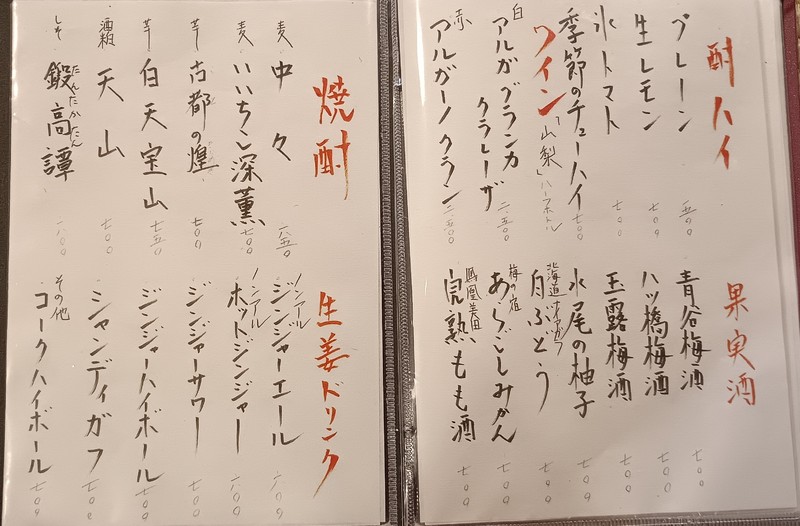 酎ハイ
プレーン 五〇〇
生レモン 七〇〇
氷トマト 七〇〇
季節のチューハイ 七〇〇
ワイン「山梨」ハーフボトル
白 アルガブランカ
クラレーザ 二、五〇〇
赤 アルガーノ クラン 二、五〇〇
果実酒
青谷梅酒 七〇〇
八ッ橋梅酒 七〇〇
玉露梅酒 七〇〇
水尾の柚子 七〇〇
北海道 白ぶどう 七〇〇
梅の宿 あらごしみかん 七〇〇
鳳凰美田 完熟もも酒 七〇〇
焼酎
麦 中々 八五〇
麦 いいちこ深薫 七〇〇
芋 古都の煌 七〇〇
芋 白天宝山 七五〇
酒粕 天山 七〇〇
しそ 鍛高譚 たんたかたん
生姜ドリンク
ノンアル ジンジャーエール 六〇〇
ノンアル ホットジンジャー 六〇〇
ジンジャーサワー 七〇〇
ジンジャーハイボール 七〇〇
シャンディガフ 七〇〇
その他
コークハイボール 七〇〇